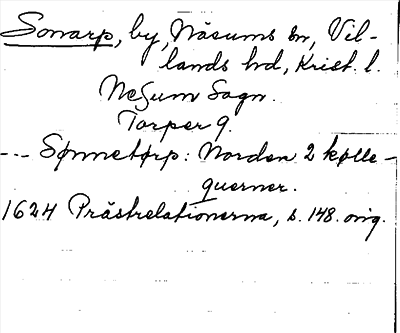 Sonarp, by, Näsums sn, Vil-
lands hd, Krist. l.
Nesum Sogn.
Torper 9.
--- Sønnetørp: Norden 2 kølle-
querner.
1624 Prästrelationerna, s. 148. orig.